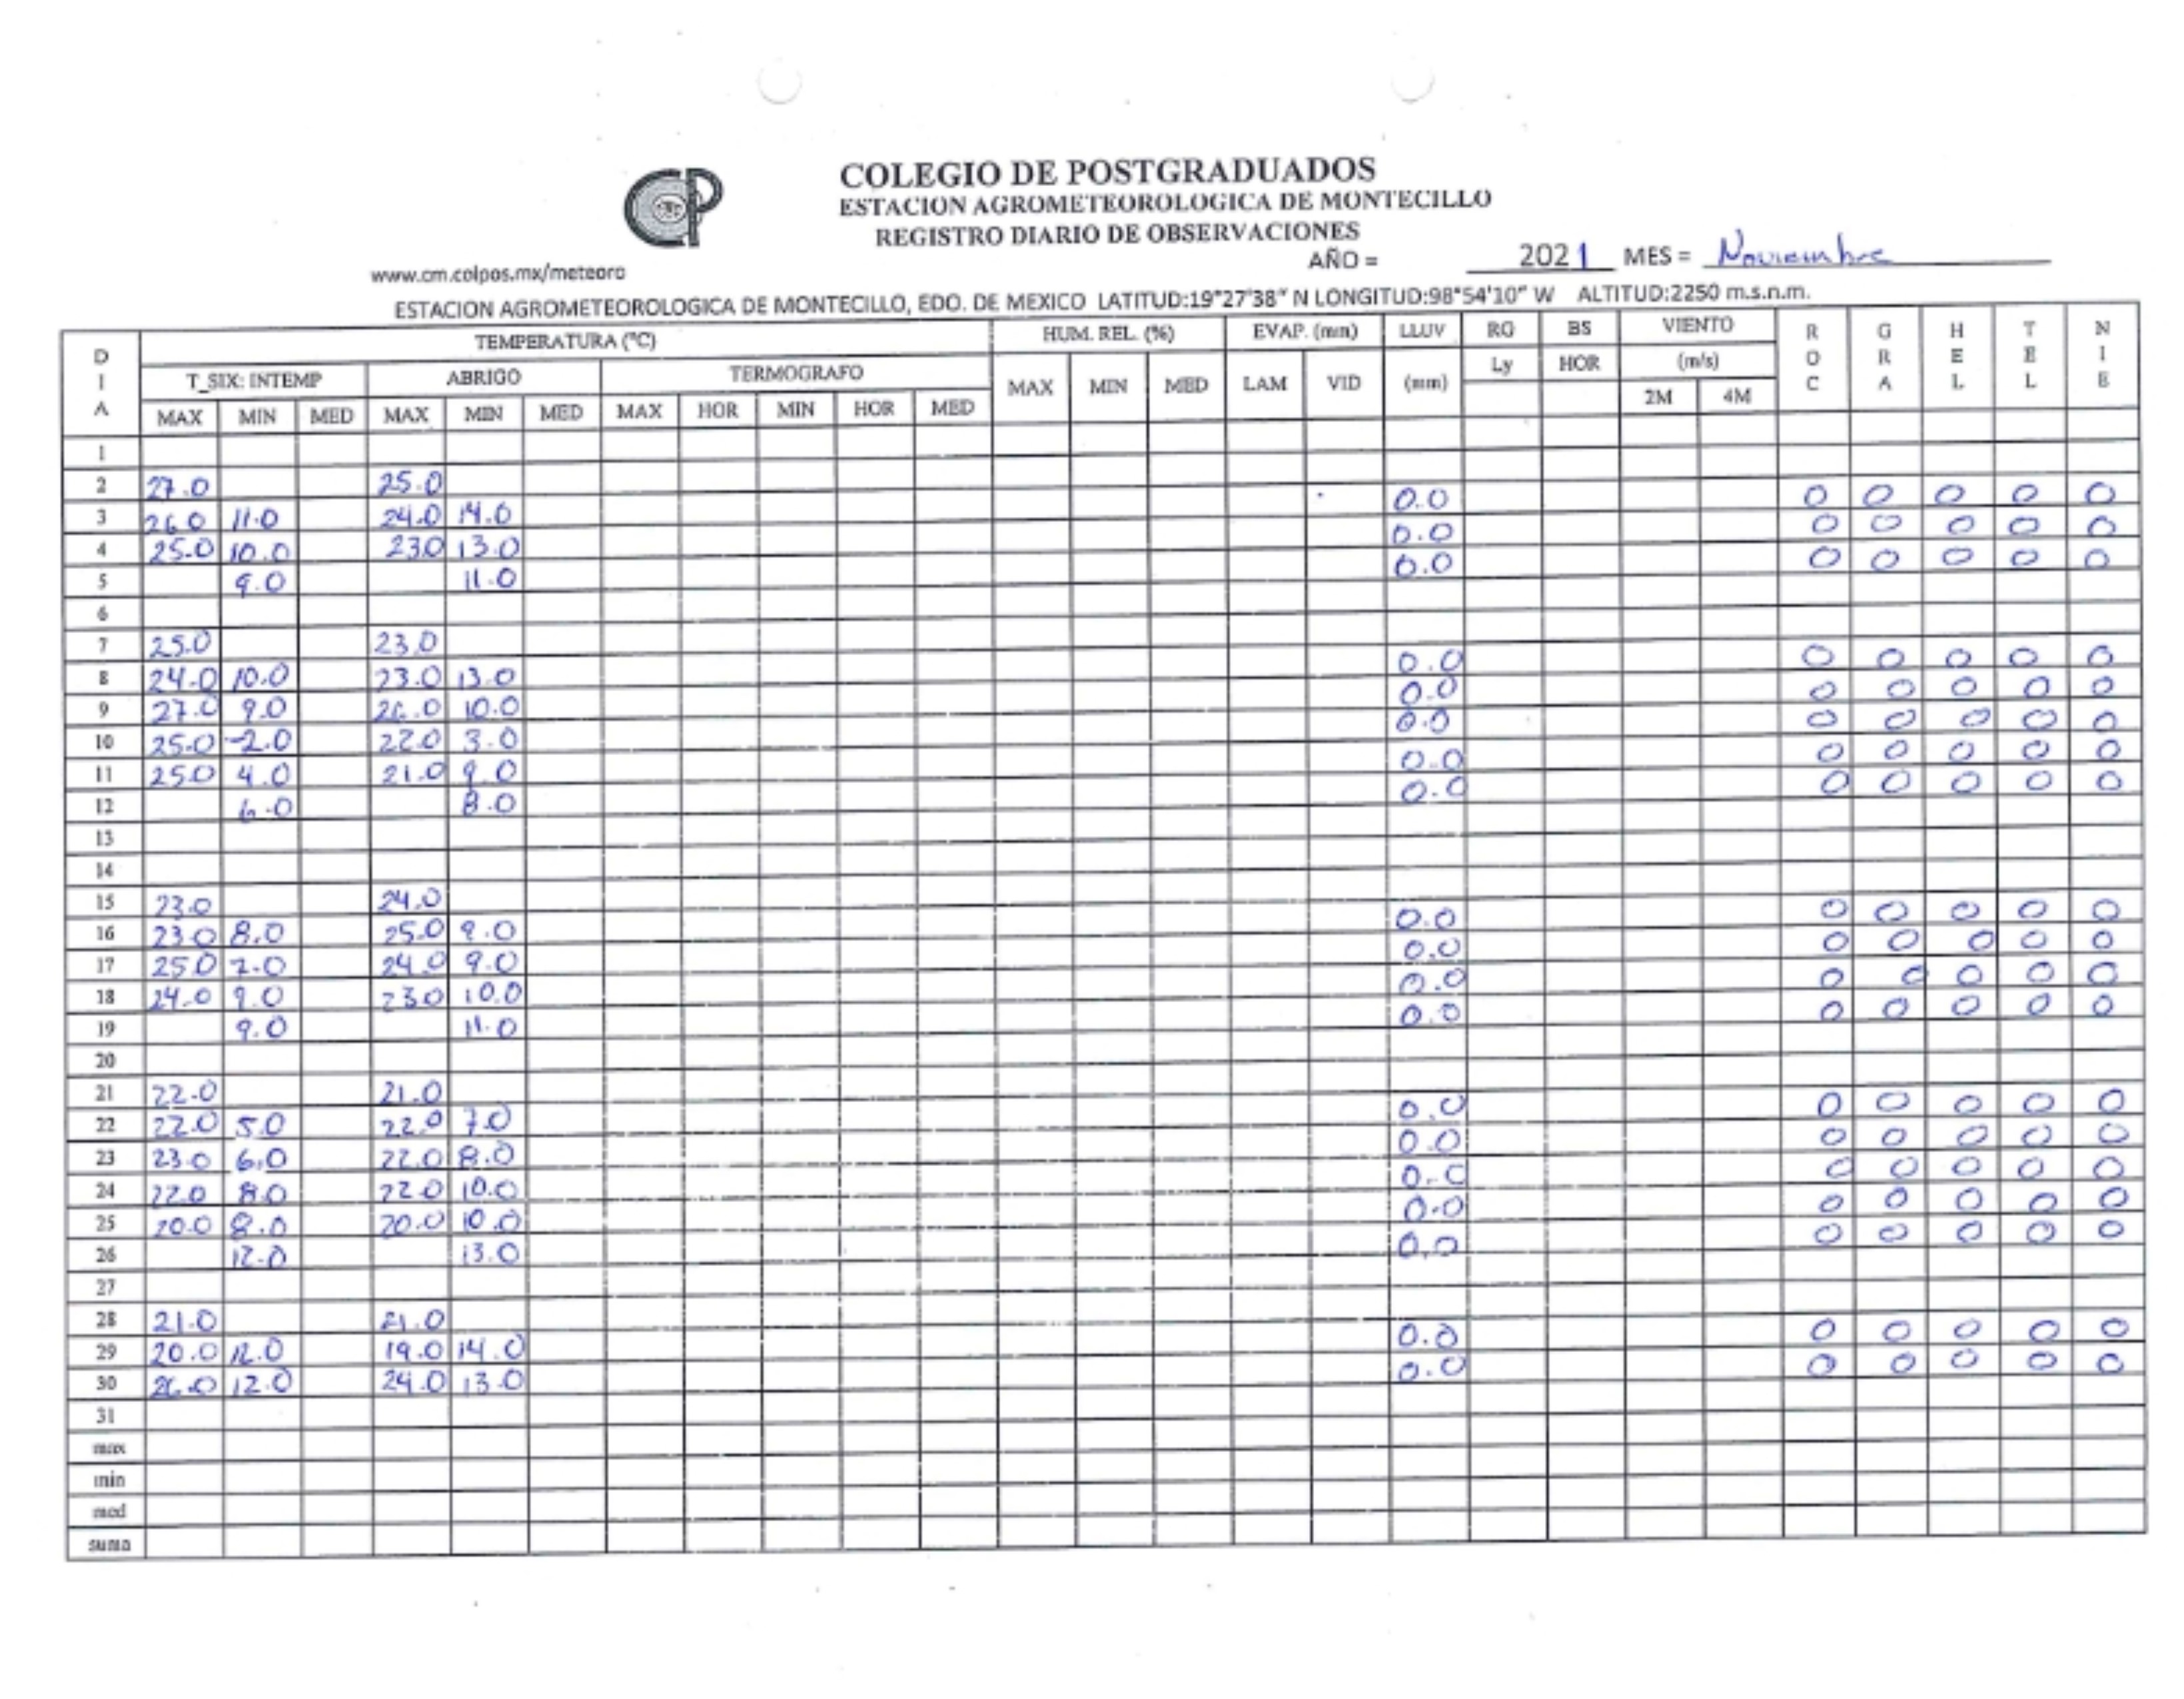 COLEGIO DE POSTGRADUADOS
ESTACION AGROMETEOROLOGICA DE MONTECILLO
REGISTRO DIARIO DE OBSERVACIONES
AÑO = 2021 MES = Noviembre
www.cm.colpos.mx/meteoro
ESTACION AGROMETEOROLOGICA DE MONTECILLO, EDO. DE MEXICO LATITUD:19°27'38" N LONGITUD:98°54'10" W ALTITUD:2250 m.s.n.m.
DIA TEMPERATURA (°C) HUM. REL. (%) EVAP. (mm) LLUV RG BS VIENTO ROC GRA HEL TEL NIE
T_SIX: INTEMP ABRIGO TERMOGRAFO MAX MIN MED LAM VID (mm) Ly HOR (m/s)
MAX MIN MED MAX MIN MED MAX HOR MIN HOR MED 2M 4M
1
2 27.0 25.0 0.0 0 0 0 0 0
3 26.0 11.0 24.0 14.0 0.0 0 0 0 0 0
4 25.0 10.0 23.0 13.0 0.0 0 0 0 0 0
5 9.0 11.0
6
7 25.0 23.0 0.0 0 0 0 0 0
8 24.0 10.0 23.0 13.0 0.0 0 0 0 0 0
9 27.0 9.0 26.0 10.0 0.0 0 0 0 0 0
10 25.0 -2.0 22.0 3.0 0.0 0 0 0 0 0
11 25.0 4.0 21.0 9.0 0.0 0 0 0 0 0
12 6.0 8.0
13
14
15 23.0 24.0 0.0 0 0 0 0 0
16 23.0 8.0 25.0 9.0 0.0 0 0 0 0 0
17 25.0 7.0 24.0 9.0 0.0 0 0 0 0 0
18 24.0 9.0 23.0 10.0 0.0 0 0 0 0 0
19 9.0 11.0
20
21 22.0 21.0 0.0 0 0 0 0 0
22 22.0 5.0 22.0 7.0 0.0 0 0 0 0 0
23 23.0 6.0 22.0 8.0 0.0 0 0 0 0 0
24 22.0 8.0 22.0 10.0 0.0 0 0 0 0 0
25 20.0 8.0 20.0 10.0 0.0 0 0 0 0 0
26 12.0 13.0
27
28 21.0 21.0 0.0 0 0 0 0 0
29 20.0 12.0 19.0 14.0 0.0 0 0 0 0 0
30 26.0 12.0 24.0 13.0
31
max
min
med
suma